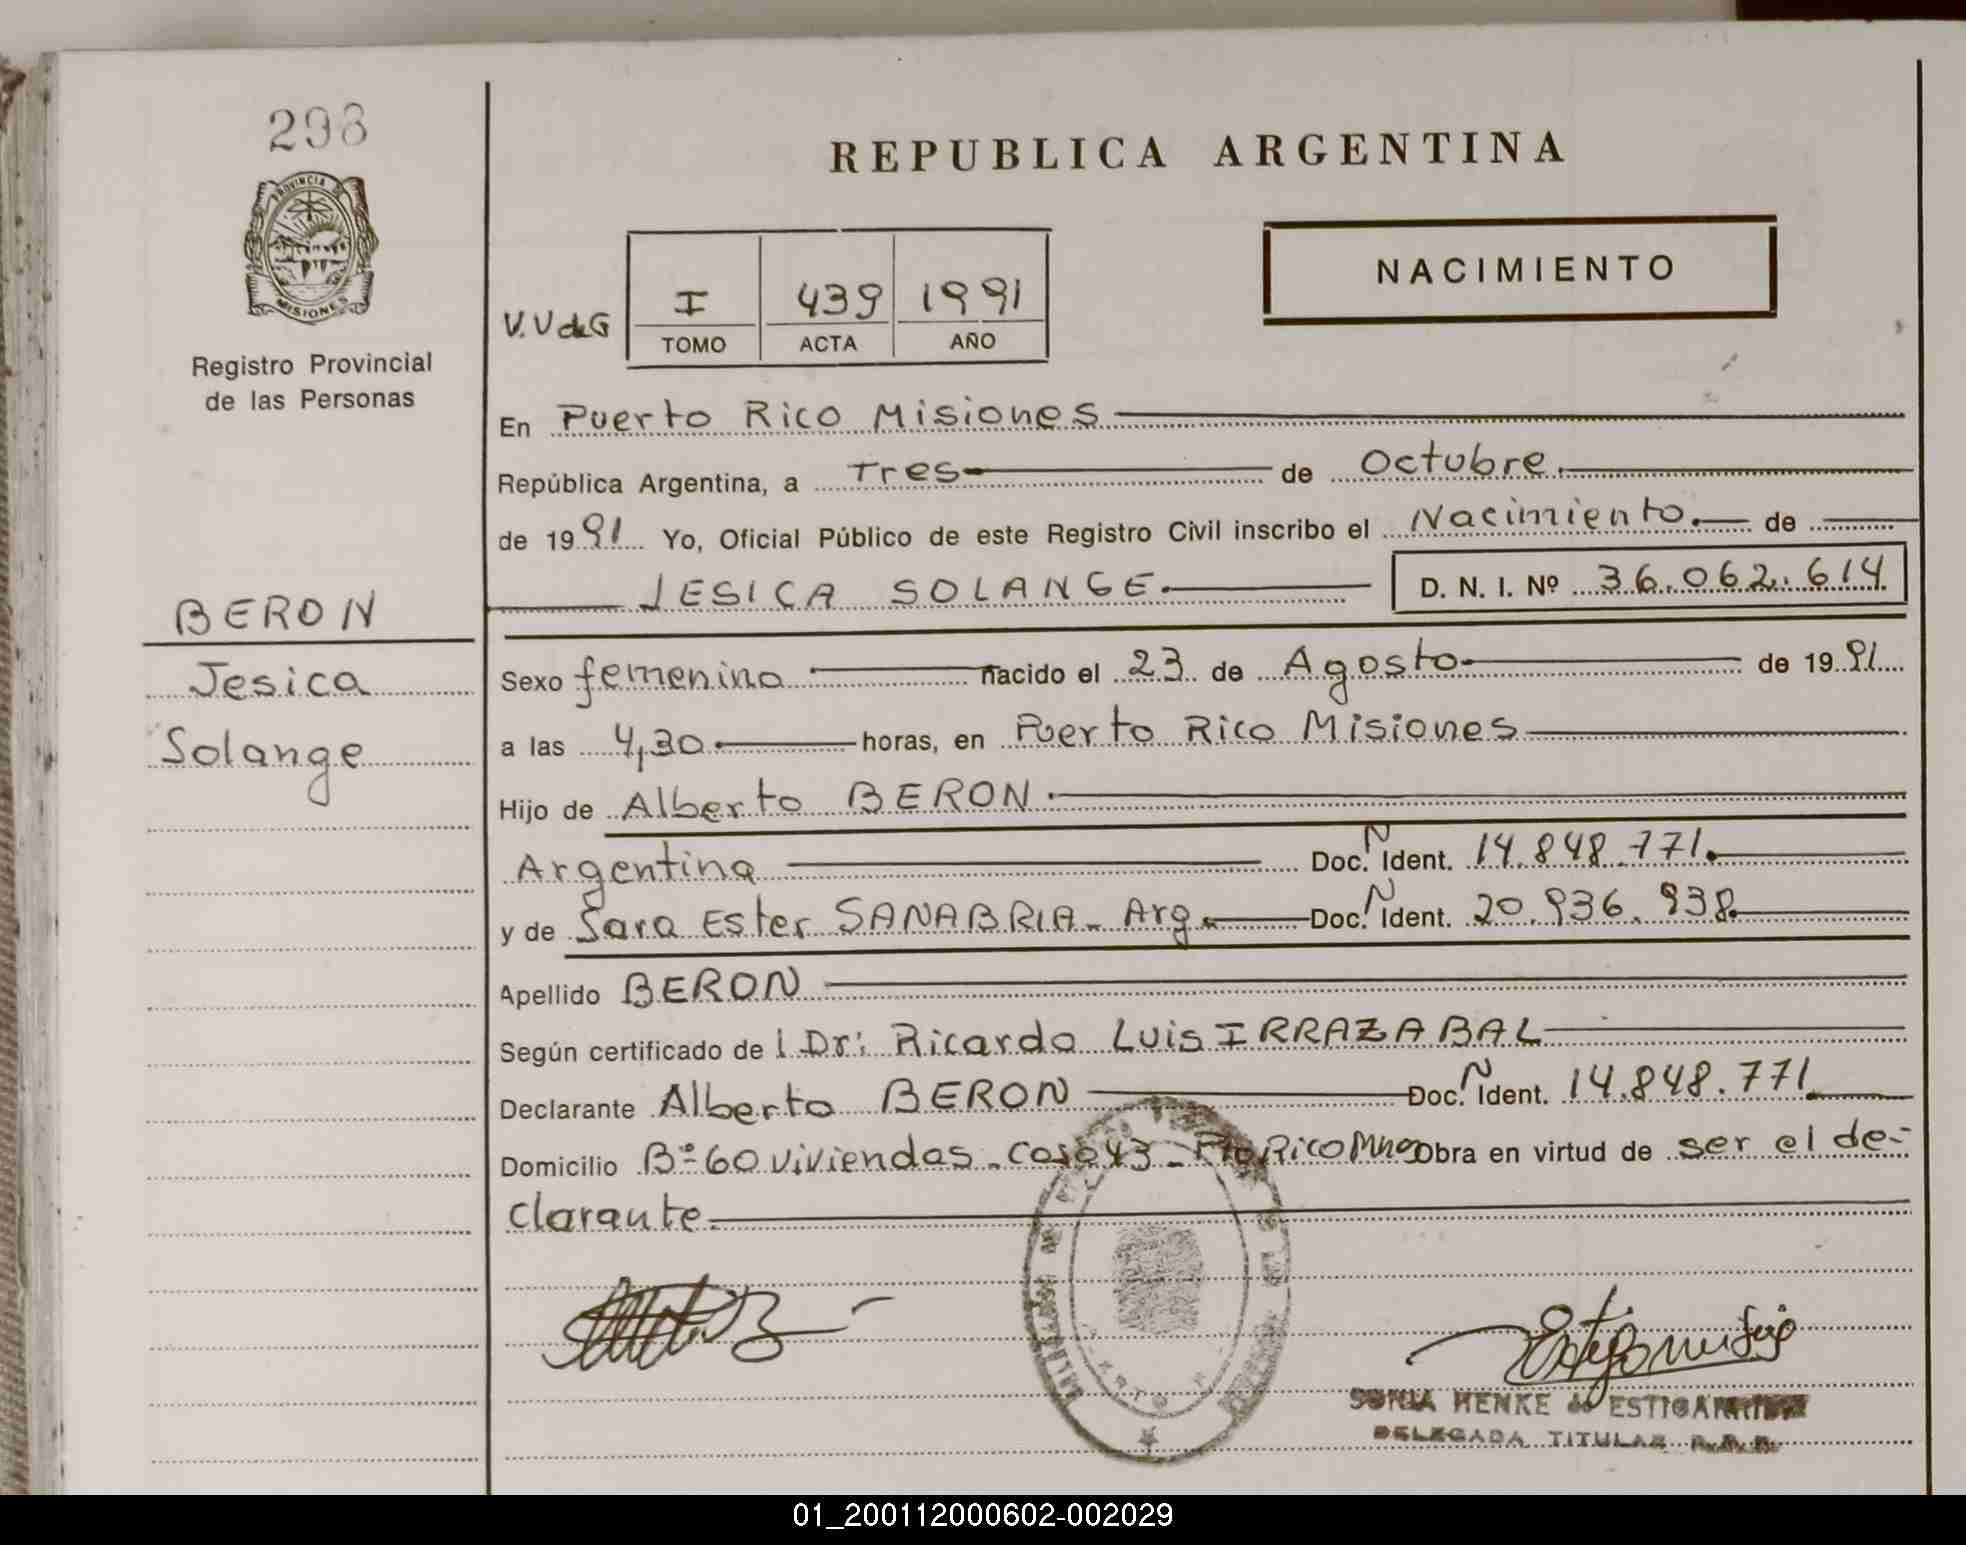 298
PROVINCIA DE
MISIONES
Registro Provincial
de las Personas
REPUBLICA ARGENTINA
NACIMIENTO
V.V de G
I 439 1991
TOMO ACTA AÑO
En Puerto Rico Misiones
República Argentina, a Tres de Octubre.
de 1991 Yo, Oficial Público de este Registro Civil inscribo el Nacimiento. de
JESICA SOLANGE. D. N. I. Nº 36.062.614
BERON
Jesica
Solange
Sexo femenino nacido el 23 de Agosto de 1991
a las 4,30 horas, en Puerto Rico Misiones
Hijo de Alberto BERON
Argentina Doc. N Ident. 14.848.771.
y de Sara Ester SANABRIA - Arg. Doc. N Ident. 20.936.938
Apellido BERON
Según certificado de l Dr: Ricardo Luis IRRAZABAL
Declarante Alberto BERON Doc. N Ident. 14.848.771
Domicilio Bº 60 viviendas - Casa 43 - Pto Rico Mnes Obra en virtud de ser el de-
clarante.
SONIA HENKE de
DELEGADA TITULAR R.P.P.
01_200112000602-002029